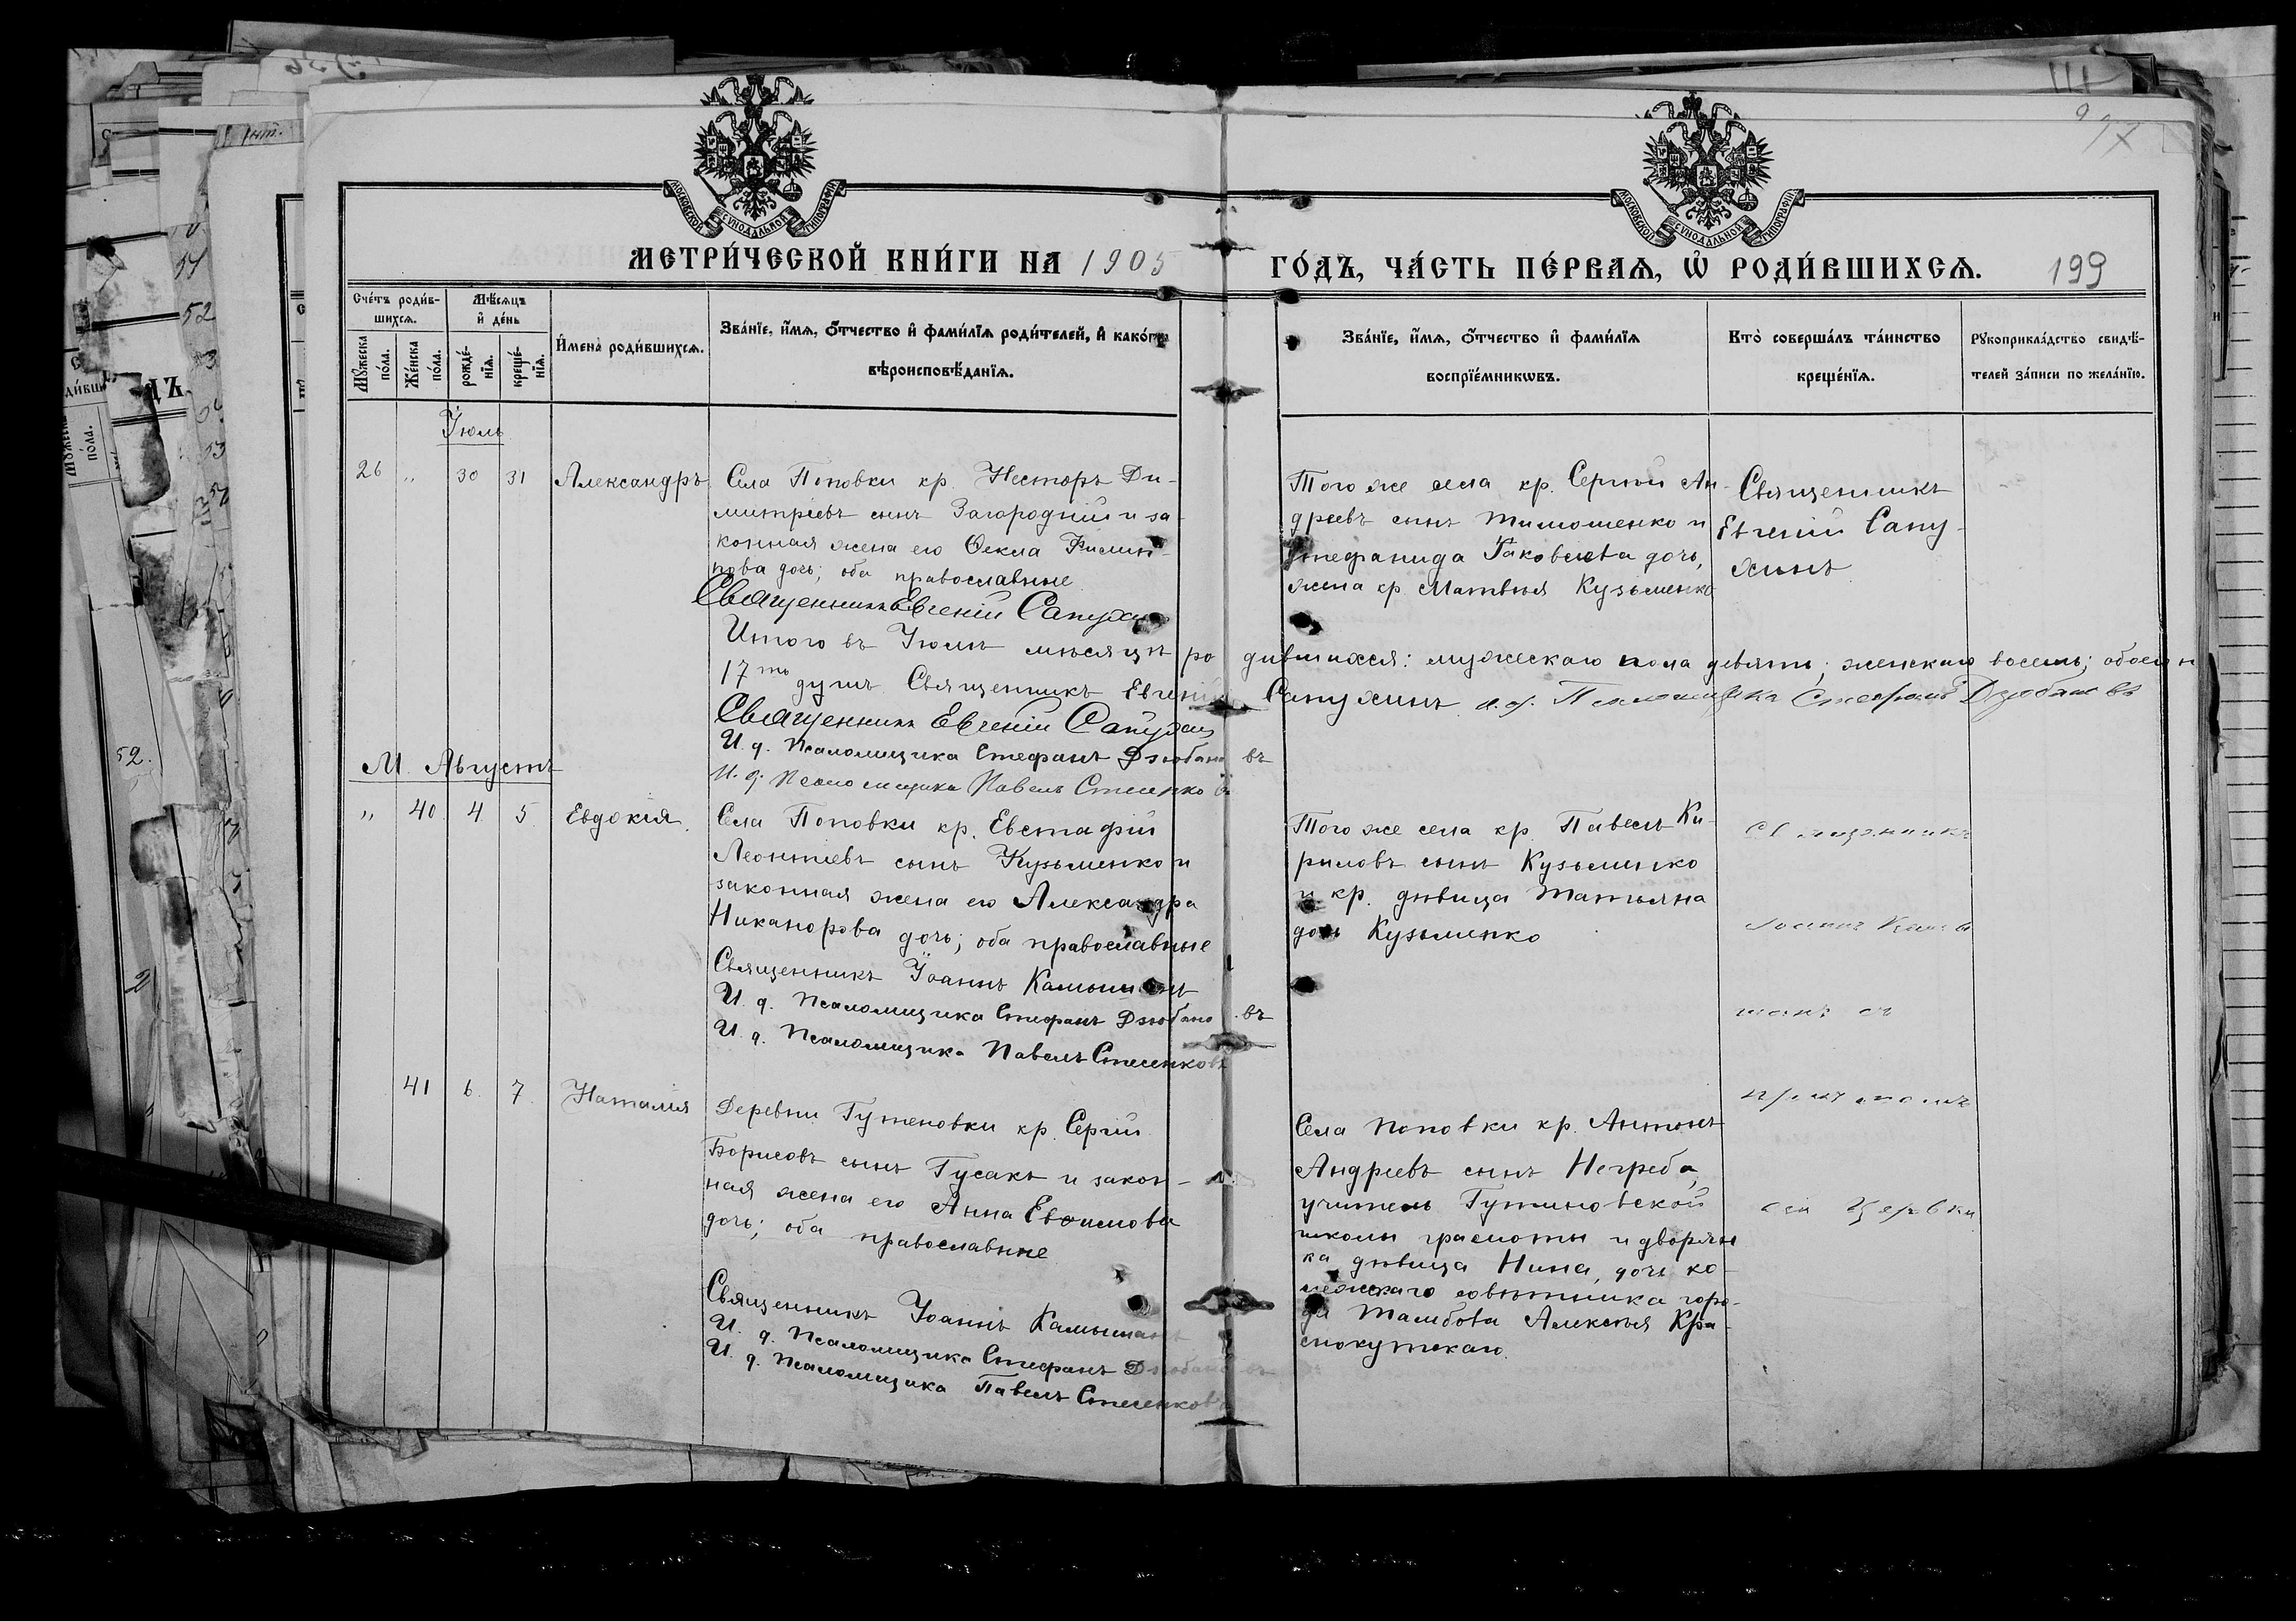 МОСКОВСКОЙ СѴНОДАЛЬНОЙ ТИПОГРАФІИ
МОСКОВСКОЙ СѴНОДАЛЬНОЙ ТИПОГРАФІИ
МЕТРИ́ЧЕСКОЙ КНИ́ГИ НА 1905
ГО́ДЪ, ЧА́СТЬ ПЕ́РВАѦ, Ѡ҆ РОДИ́ВШИХСѦ. 199
Сче́тъ роди́в-
шихсѧ.
Мꙋ́жеска по́ла.
Же́нска по́ла.
Мѣ́сѧцъ и҆ де́нь
рожде́-нїѧ.
креще́-нїѧ.
И҆мена̀ роди́вшихсѧ.
Зва́нїе, и҆́мѧ, ѻ҆́тчество и҆ фами́лїѧ роди́телей, и҆ како́гѡ
вѣроисповѣ́данїѧ.
Зва́нїе, и҆́мѧ, ѻ҆́тчество и҆ фами́лїѧ
воспрїе́мникѡвъ.
Кто̀ соверша́лъ та́инство
креще́нїѧ.
Рꙋкоприкла́дство свидѣ́-
телей за́писи по жела́нїю.
Іюль
26 „ 30 31 Александръ
Села Поповки кр. Несторъ Ди-
митріевъ сынъ Загородній и за-
конная жена его Ѳекла Филип-
пова дочь; оба православные
Священникъ Евгеній Сапухинъ
Того же села кр. Сергій Ан-
дреевъ сынъ Тимошенко и
Стефанида Іаковлева дочь,
жена кр. Матвѣя Кузьменко
Священникъ
Евгеній Сапу-
хинъ
Итого въ Іюлѣ мѣсяцѣ родившихся: мужескаго пола девять; женскаго восемь; обоего
17ть душъ. Священникъ Евгеній Сапухинъ и.д. Псаломщика Стефанъ Дзюбановъ
Священникъ Евгеній Сапухинъ
И. д. Псаломщика Стефанъ Дзюбановъ
И. д. Псаломщика Павелъ
М. Августъ
„ 40 4 5 Евдокія.
Села Поповки кр. Евстафій
Леонтіевъ сынъ Кузьменко и
законная жена его Александра
Никанорова дочь; оба православные
Священникъ Іоаннъ Камышанъ
И. д. Псаломщика Стефанъ Дзюбановъ
И. д. Псаломщика Павелъ Стесенковъ
Того же села кр. Павелъ Ки-
риловъ сынъ Кузьменко
и кр. дѣвица Татьяна
дочь Кузьменко
Священникъ
Іоаннъ Камы
шанъ съ
причтомъ
сей Церкви
41 6 7 Наталія
Деревни Гутеновки кр. Сергій
Борисовъ сынъ Гусакъ и закон-
ная жена его Анна Евѳимова
дочь; оба православные
Священникъ Іоаннъ Камышанъ
И. д. Псаломщика Стефанъ Дзюбановъ
И. д. Псаломщика Павелъ Стесенковъ
Села Поповки кр. Антонъ
Андреевъ сынъ Негреба,
учитель Гутеновской
школы грамоты и дворян
ка дѣвица Нина, дочь ко-
лежскаго совѣтника горо-
да Тамбова Алексѣя Кра-
снокутскаго.